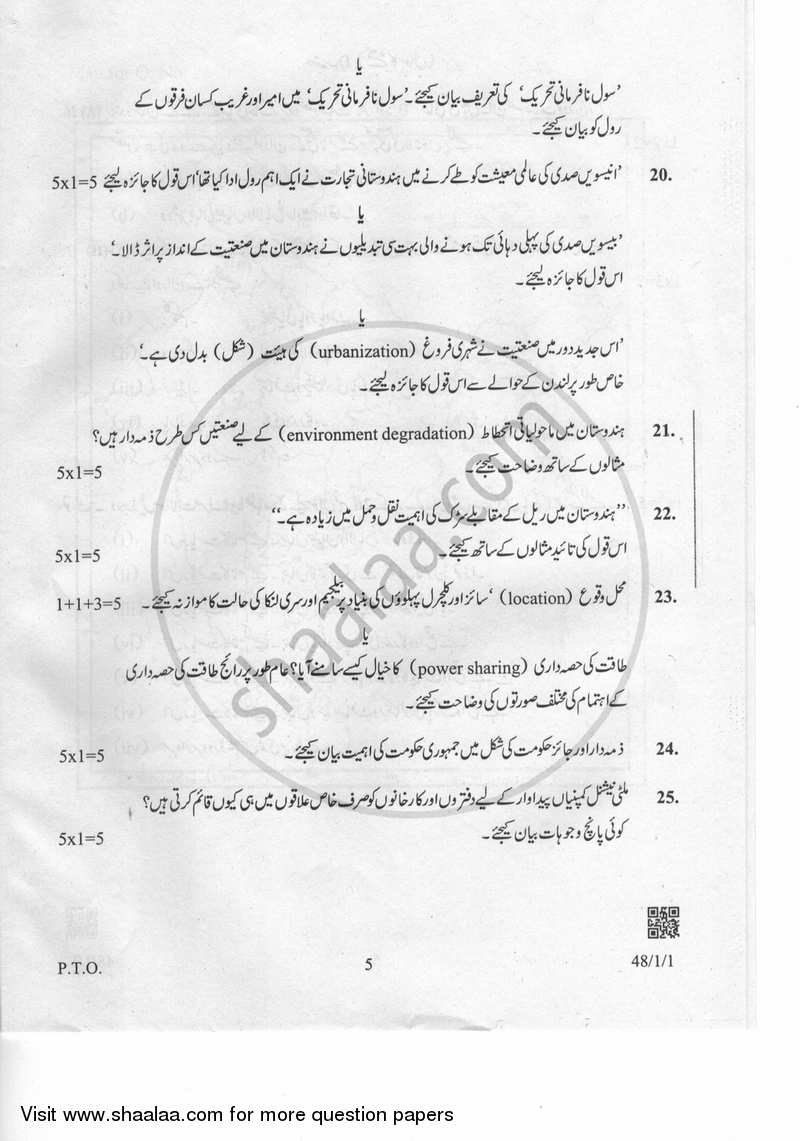 یا
’سول نافرمانی تحریک‘ کی تعریف بیان کیجئے۔ ’سول نافرمانی تحریک‘ میں امیر اور غریب کسان فرقوں کے
رول کو بیان کیجئے۔
20. ’انیسویں صدی کی عالمی معیشت کو طے کرنے میں ہندوستانی تجارت نے ایک اہم رول ادا کیا تھا‘ اس قول کا جائزہ لیجئے 5x1=5
یا
’بیسویں صدی کی پہلی دہائی تک ہونے والی بہت سی تبدیلیوں نے ہندوستان میں صنعتیت کے انداز پر اثر ڈالا۔‘
اس قول کا جائزہ لیجئے۔
یا
’اس جدید دور میں صنعتیت نے شہری فروغ (urbanization) کی ہیئت (شکل) بدل دی ہے۔‘
خاص طور پر لندن کے حوالے سے اس قول کا جائزہ لیجئے۔
21. ہندوستان میں ماحولیاتی انحطاط (environment degradation) کے لیے صنعتیں کس طرح ذمہ دار ہیں؟
مثالوں کے ساتھ وضاحت کیجئے۔ 5x1=5
22. ’’ہندوستان میں ریل کے مقابلے سڑک کی اہمیت نقل و حمل میں زیادہ ہے۔‘‘
اس قول کی تائید مثالوں کے ساتھ کیجئے۔ 5x1=5
23. محل وقوع (location) ‘ سائز اور کلچرل پہلوؤں کی بنیاد پر بیلجیم اور سری لنکا کی حالت کا موازنہ کیجئے۔ 1+1+3=5
یا
طاقت کی حصہ داری (power sharing) کا خیال کیسے سامنے آیا؟ عام طور پر رائج طاقت کی حصہ داری
کے اہتمام کی مختلف صورتوں کی وضاحت کیجئے۔
24. ذمہ دار اور جائز حکومت کی شکل میں جمہوری حکومت کی اہمیت بیان کیجئے۔ 5x1=5
25. ملٹی نیشنل کمپنیاں پیداوار کے لیے دفتروں اور کارخانوں کو صرف خاص علاقوں میں ہی کیوں قائم کرتی ہیں؟
کوئی پانچ وجوہات بیان کیجئے۔ 5x1=5
shaalaa.com
P.T.O. 5 48/1/1
Visit www.shaalaa.com for more question papers